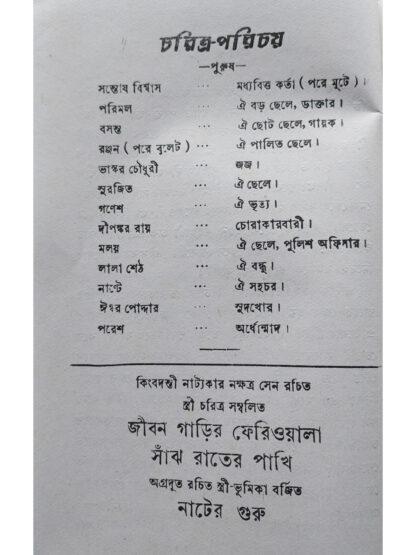 চরিত্র-পরিচয়
—পুরুষ—
সন্তোষ বিশ্বাস ··· মধ্যবিত্ত কর্তা ( পরে মুটে ) ।
পরিমল ··· ঐ বড় ছেলে, ডাক্তার ।
বসন্ত ··· ঐ ছোট ছেলে, গায়ক ।
রঞ্জন ( পরে বুলেট ) ··· ঐ পালিত ছেলে ।
ভাস্কর চৌধুরী ··· জজ ।
সুরজিত ··· ঐ ছেলে ।
গণেশ ··· ঐ ভৃত্য ।
দীপঙ্কর রায় ··· চোরাকারবারী ।
মলয় ··· ঐ ছেলে, পুলিশ অফিসার ।
লালা শেঠ ··· ঐ বন্ধু ।
নান্টে ··· ঐ সহচর ।
ঈশ্বর পোদ্দার ··· সুদখোর ।
পরেশ ··· অর্ধোন্মাদ ।
কিংবদন্তী নাট্যকার নক্ষত্র সেন রচিত
স্ত্রী চরিত্র সম্বলিত
জীবন গাড়ির ফেরিওয়ালা
সাঁঝ রাতের পাখি
অগ্রদূত রচিত স্ত্রী-ভূমিকা বর্জিত
নাটের গুরু